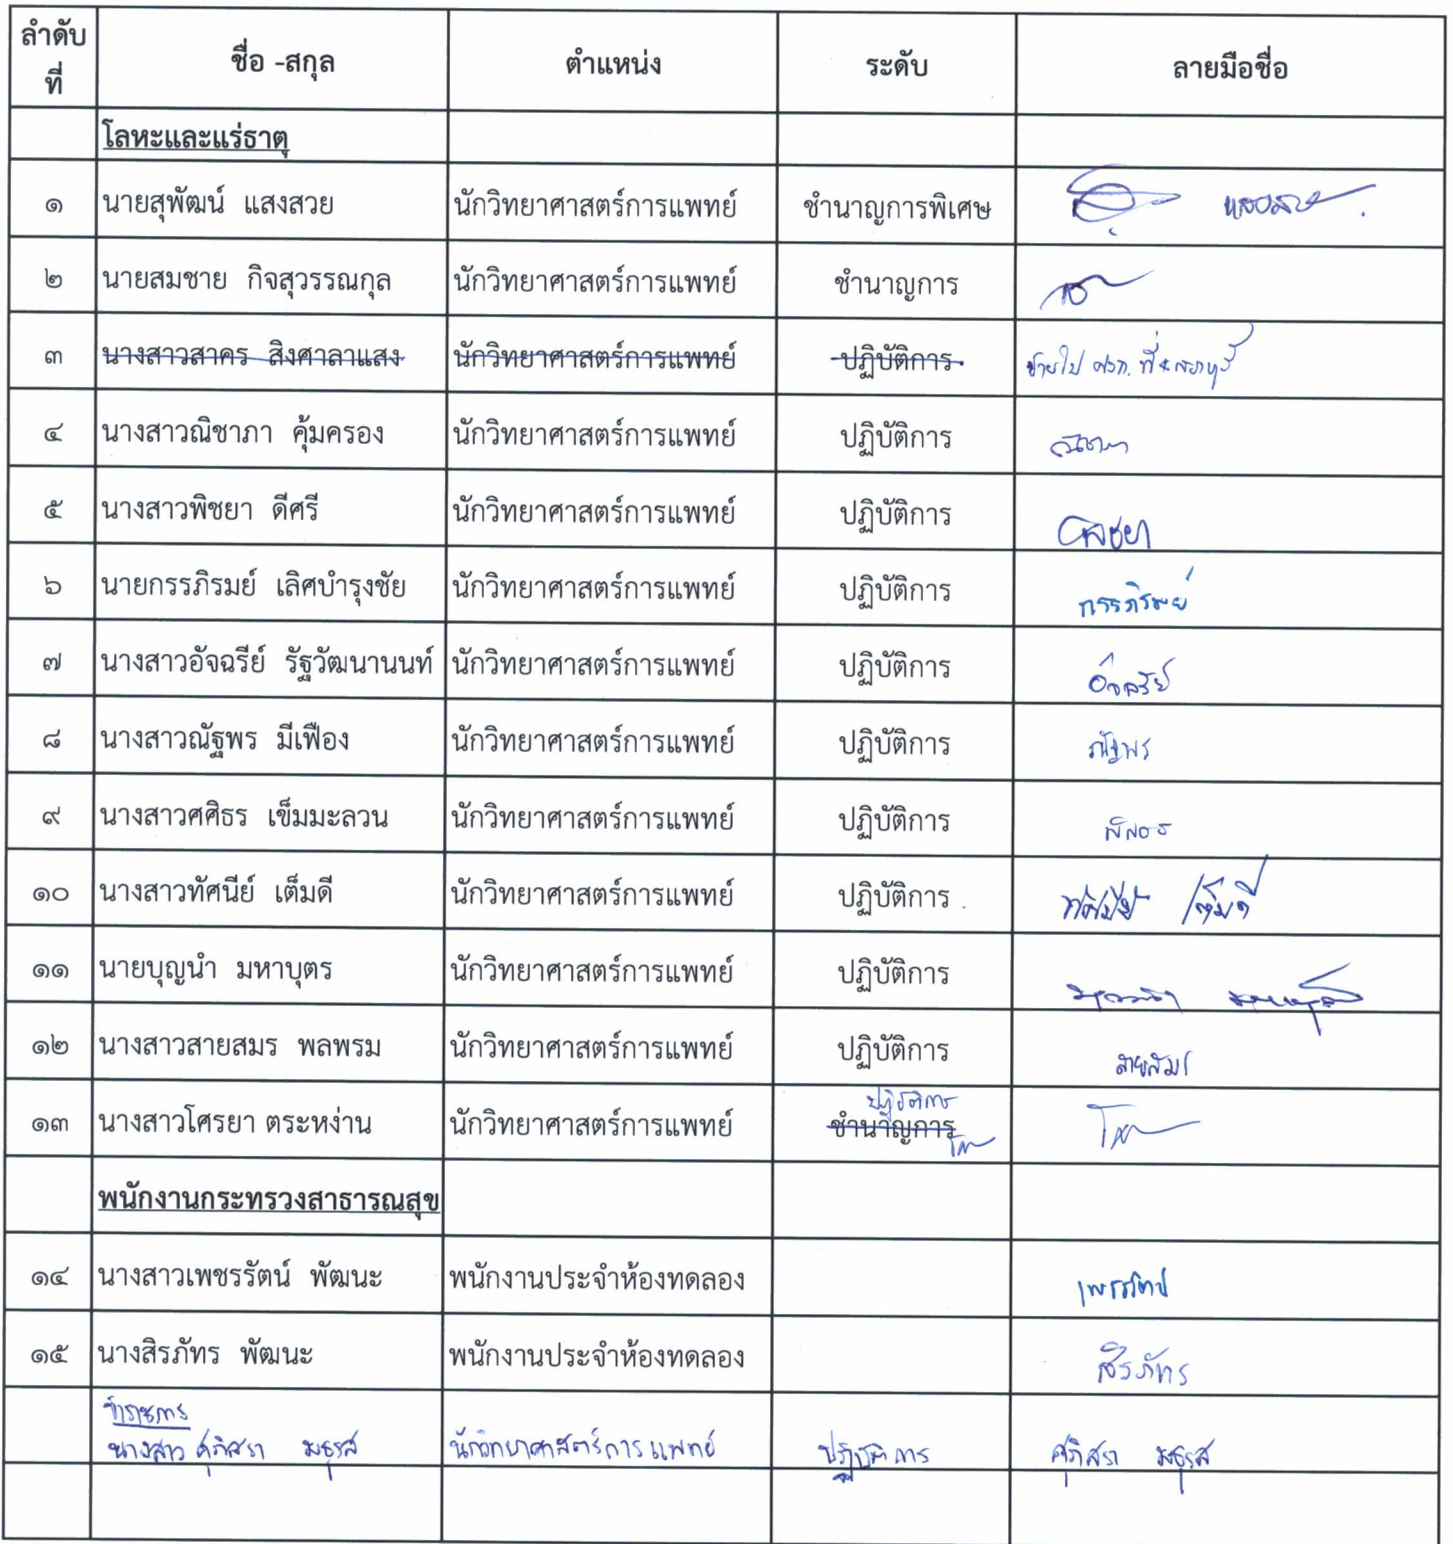 ลำดับที่ ชื่อ -สกุล ตำแหน่ง ระดับ ลายมือชื่อ
โลหะและแร่ธาตุ
๑ นายสุพัฒน์ แสงสวย นักวิทยาศาสตร์การแพทย์ ชำนาญการพิเศษ
๒ นายสมชาย กิจสุวรรณกุล นักวิทยาศาสตร์การแพทย์ ชำนาญการ
๓ นางสาวสาคร สิงศาลาแสง นักวิทยาศาสตร์การแพทย์ ปฏิบัติการ ย้ายไป
๔ นางสาวณิชาภา คุ้มครอง นักวิทยาศาสตร์การแพทย์ ปฏิบัติการ ณิชาภา
๕ นางสาวพิชยา ดีศรี นักวิทยาศาสตร์การแพทย์ ปฏิบัติการ พิชยา
๖ นายกรรภิรมย์ เลิศบำรุงชัย นักวิทยาศาสตร์การแพทย์ ปฏิบัติการ กรรภิรมย์
๗ นางสาวอัจฉรีย์ รัฐวัฒนานนท์ นักวิทยาศาสตร์การแพทย์ ปฏิบัติการ อัจฉรีย์
๘ นางสาวณัฐพร มีเฟือง นักวิทยาศาสตร์การแพทย์ ปฏิบัติการ ณัฐพร
๙ นางสาวศศิธร เข็มมะลวน นักวิทยาศาสตร์การแพทย์ ปฏิบัติการ ศศิธร
๑๐ นางสาวทัศนีย์ เต็มดี นักวิทยาศาสตร์การแพทย์ ปฏิบัติการ ทัศนีย์ เต็มดี
๑๑ นายบุญนำ มหาบุตร นักวิทยาศาสตร์การแพทย์ ปฏิบัติการ
๑๒ นางสาวสายสมร พลพรม นักวิทยาศาสตร์การแพทย์ ปฏิบัติการ สายสมร
ปฏิบัติการ
๑๓ นางสาวโศรยา ตระหง่าน นักวิทยาศาสตร์การแพทย์ ชำนาญการ
พนักงานกระทรวงสาธารณสุข
๑๔ นางสาวเพชรรัตน์ พัฒนะ พนักงานประจำห้องทดลอง เพชรรัตน์
๑๕ นางสิรภัทร พัฒนะ พนักงานประจำห้องทดลอง สิรภัทร
ข้าราชการ
นางสาว ศุภิสรา มธุรส นักวิทยาศาสตร์การแพทย์ ปฏิบัติการ ศุภิสรา มธุรส